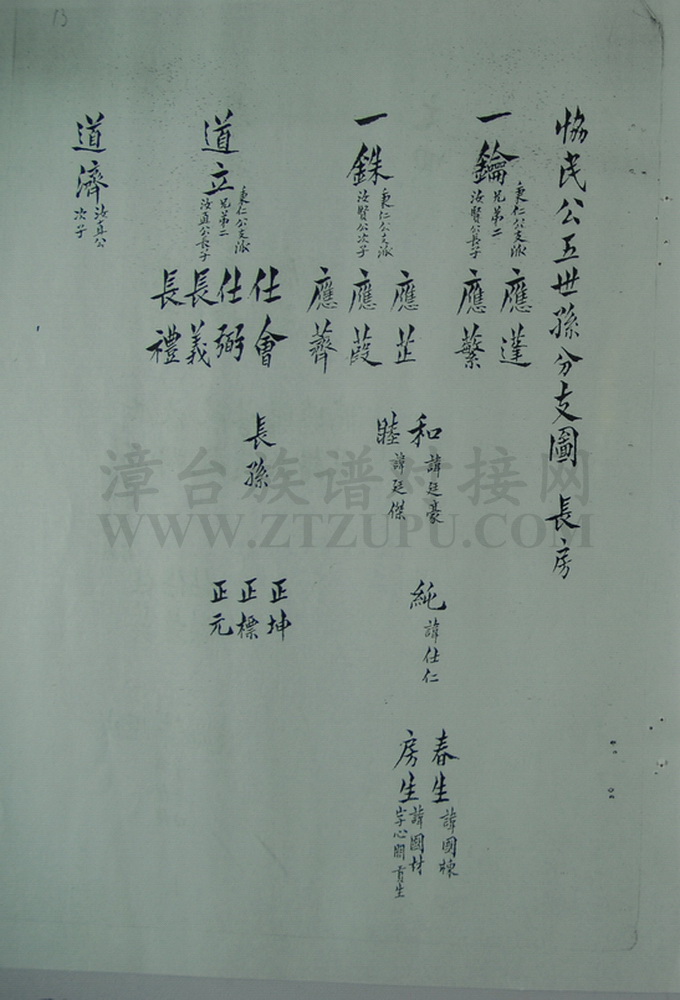 恊民公五世孫分支圖 長房
一鑰
秉仁公支派
兄弟二
汝賢公長子
應蓬
應蘩
一銖
秉仁公支派
汝賢公次子
應芷
應葭
應薺
和 諱廷豪
睦 諱廷傑
純 諱仕仁
春生 諱國棟
房生 諱國材
字心開 貢生
道立
秉仁公支派
兄弟二
汝直公長子
仕會
仕弼
長義
長禮
長孫
正坤
正標
正元
道濟
汝直公
次子
漳台族谱对接网
WWW.ZTZUPU.COM
13